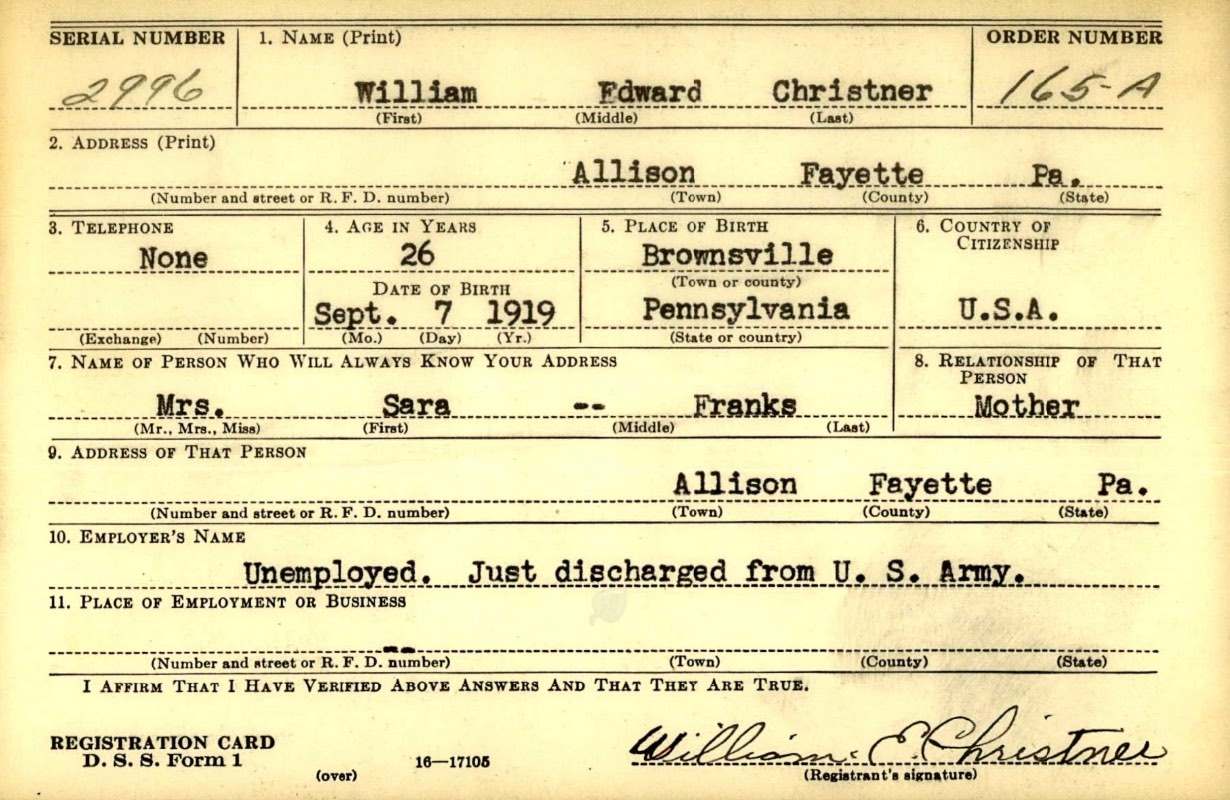 SERIAL NUMBER 1. NAME (Print) ORDER NUMBER
2996 William Edward Christner 165-A
(First) (Middle) (Last)
2. ADDRESS (Print)
Allison Fayette Pa.
(Number and street or R. F. D. number) (Town) (County) (State)
3. TELEPHONE 4. AGE IN YEARS 5. PLACE OF BIRTH 6. COUNTRY OF
CITIZENSHIP
None 26 Brownsville
DATE OF BIRTH (Town or county)
Sept. 7 1919 Pennsylvania U.S.A.
(Exchange) (Number) (Mo.) (Day) (Yr.) (State or country)
7. NAME OF PERSON WHO WILL ALWAYS KNOW YOUR ADDRESS 8. RELATIONSHIP OF THAT
PERSON
Mrs. Sara -- Franks Mother
(Mr., Mrs., Miss) (First) (Middle) (Last)
9. ADDRESS OF THAT PERSON
Allison Fayette Pa.
(Number and street or R. F. D. number) (Town) (County) (State)
10. EMPLOYER'S NAME
Unemployed. Just discharged from U. S. Army.
11. PLACE OF EMPLOYMENT OR BUSINESS
--
(Number and street or R. F. D. number) (Town) (County) (State)
I AFFIRM THAT I HAVE VERIFIED ABOVE ANSWERS AND THAT THEY ARE TRUE.
REGISTRATION CARD
D. S. S. Form 1 (over) 16—17105 William E. Christner
(Registrant's signature)